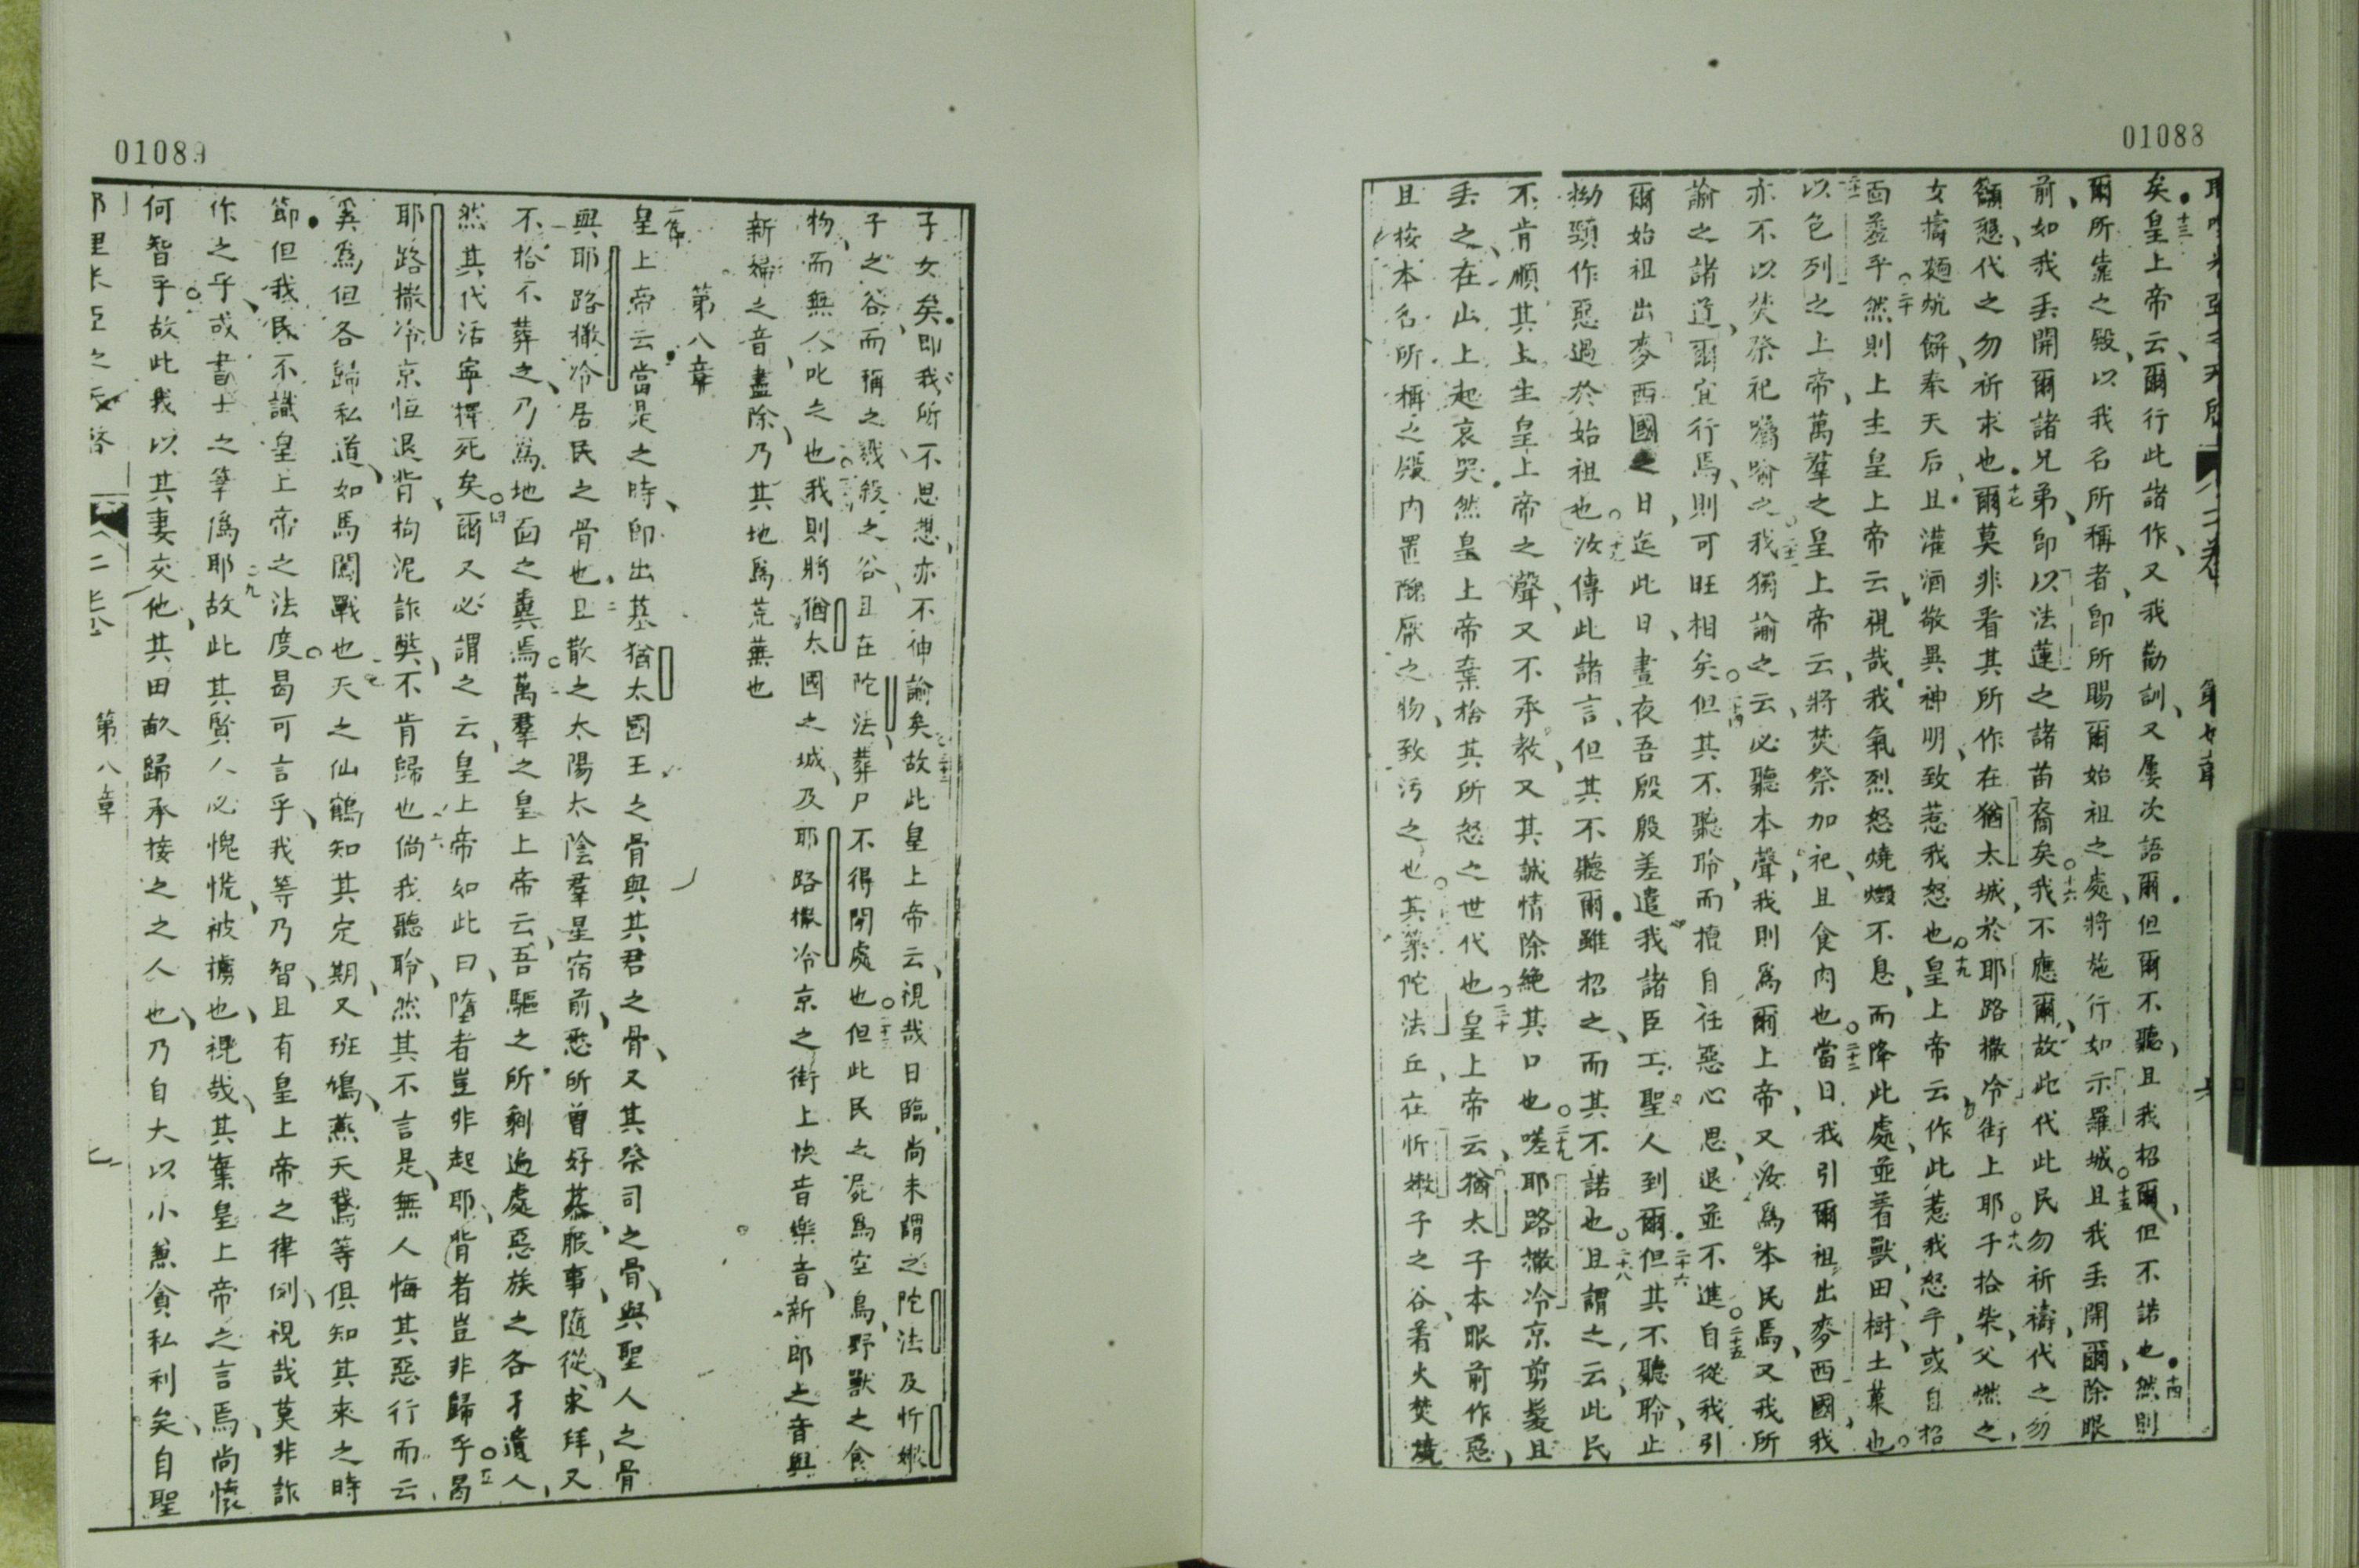 01088
耶哩米亞之天啓 二卷 第七章 六
矣十三皇上帝云、爾行此諸作、又我勸訓、又屢次語爾、但爾不聽、且我招爾、但不諾也十四然則
爾所靠之殿、以我名所稱者、即所賜爾始祖之處、將施行如示羅城十五且我丟開爾、除眼
前、如我丟開爾諸兄弟、即以法蓮之諸苗裔矣十六我不應爾、故此代此民勿祈禱、代之勿
籲懇、代之勿祈求也十七爾莫非看其所作在猶太城、於耶路撒冷街上耶十八子拾柴、父燃之、
女擣麵炕餅、奉天后、且灌酒敬異神明、致惹我怒也十九皇上帝云作此惹我怒乎、或自招
面羞乎二十然則上主皇上帝云、視哉、我氣烈怒燒燬不息、而降此處並着獸、田樹、土菓也
二十一以色列之上帝、萬羣之皇上帝云、將焚祭加祀、且食肉也二十二當日我引爾祖出麥西國、我
亦不以焚祭祀囑喻之二十三我獨諭之云、必聽本聲、我則爲爾上帝、又汝爲本民焉、又我所
諭之諸道、爾宜行焉、則可旺相矣二十四但其不聽聆、而擅自任惡心思、退並不進二十五自從我引
爾始祖出麥西國之日、迄此日、晝夜吾殷殷差遣我諸臣工、聖人到爾二十六但其不聽聆、止
拗頸作惡過於始祖也二十七汝傳此諸言、但其不聽爾、雖招之、而其不諾也二十八且謂之云、此民
不肯順其上主皇上帝之聲、又不承教、又其誠情除絶其口也二十九嗟耶路撒冷京剪髮且
丟之、在山上起哀哭、然皇上帝棄捨其所怒之世代也三十皇上帝云、猶太子本眼前作惡、
且按本名所稱之殿內置醜厭之物、致污之也其築陀法丘、在忻嫩子之谷、着火焚燒
01089
子女矣、即我所不思想、亦不神諭矣三十二故此皇上帝云、視哉日臨、尚未謂之陀法及忻嫩
子之谷、而稱之戮殺之谷、且在陀法葬尸不得閒處也三十三但此民之屍爲空鳥野獸之食
物、而無人叱之也三十四我則將猶太國之城、及耶路撒冷京之街上快音樂音、新郎之音與
新婦之音盡除、乃其地爲荒蕪也
第八章
一節皇上帝云、當是之時、即出墓猶太國王之骨與其君之骨、又其祭司之骨、與聖人之骨
與耶路撒冷居民之骨也二且散之太陽太陰羣星宿前、悉所曾好慕、服事、隨從、求拜、又
不拾不葬之、乃爲地面之糞焉三萬羣之皇上帝云、吾驅之所剩遍處惡族之各孑遺人、
然其代活寧擇死矣四爾又必謂之云、皇上帝如此曰、墮者豈非起耶、背者豈非歸乎五曷
耶路撒冷京恒退背、拘泥詐弊、不肯歸也六倘我聽聆、然其不言是、無人悔其惡行而云
奚爲但各歸私道、如馬闖戰也七天之仙鶴知其定期、又班鳩、燕、天鵞等俱知其來之時
節、但我民不識皇上帝之法度八曷可言乎、我等乃智、且有皇上帝之律例、視哉莫非詐
作之乎、或書士之筆僞耶九故此其賢人必愧慌、被擄也、視哉、其棄皇上帝之言焉、尚懷
何智乎十故此我以其妻交他、其田畝歸承接之之人也、乃自大以小、兼貪私利矣、自聖
耶哩米亞之天啓 二卷 第八章 七